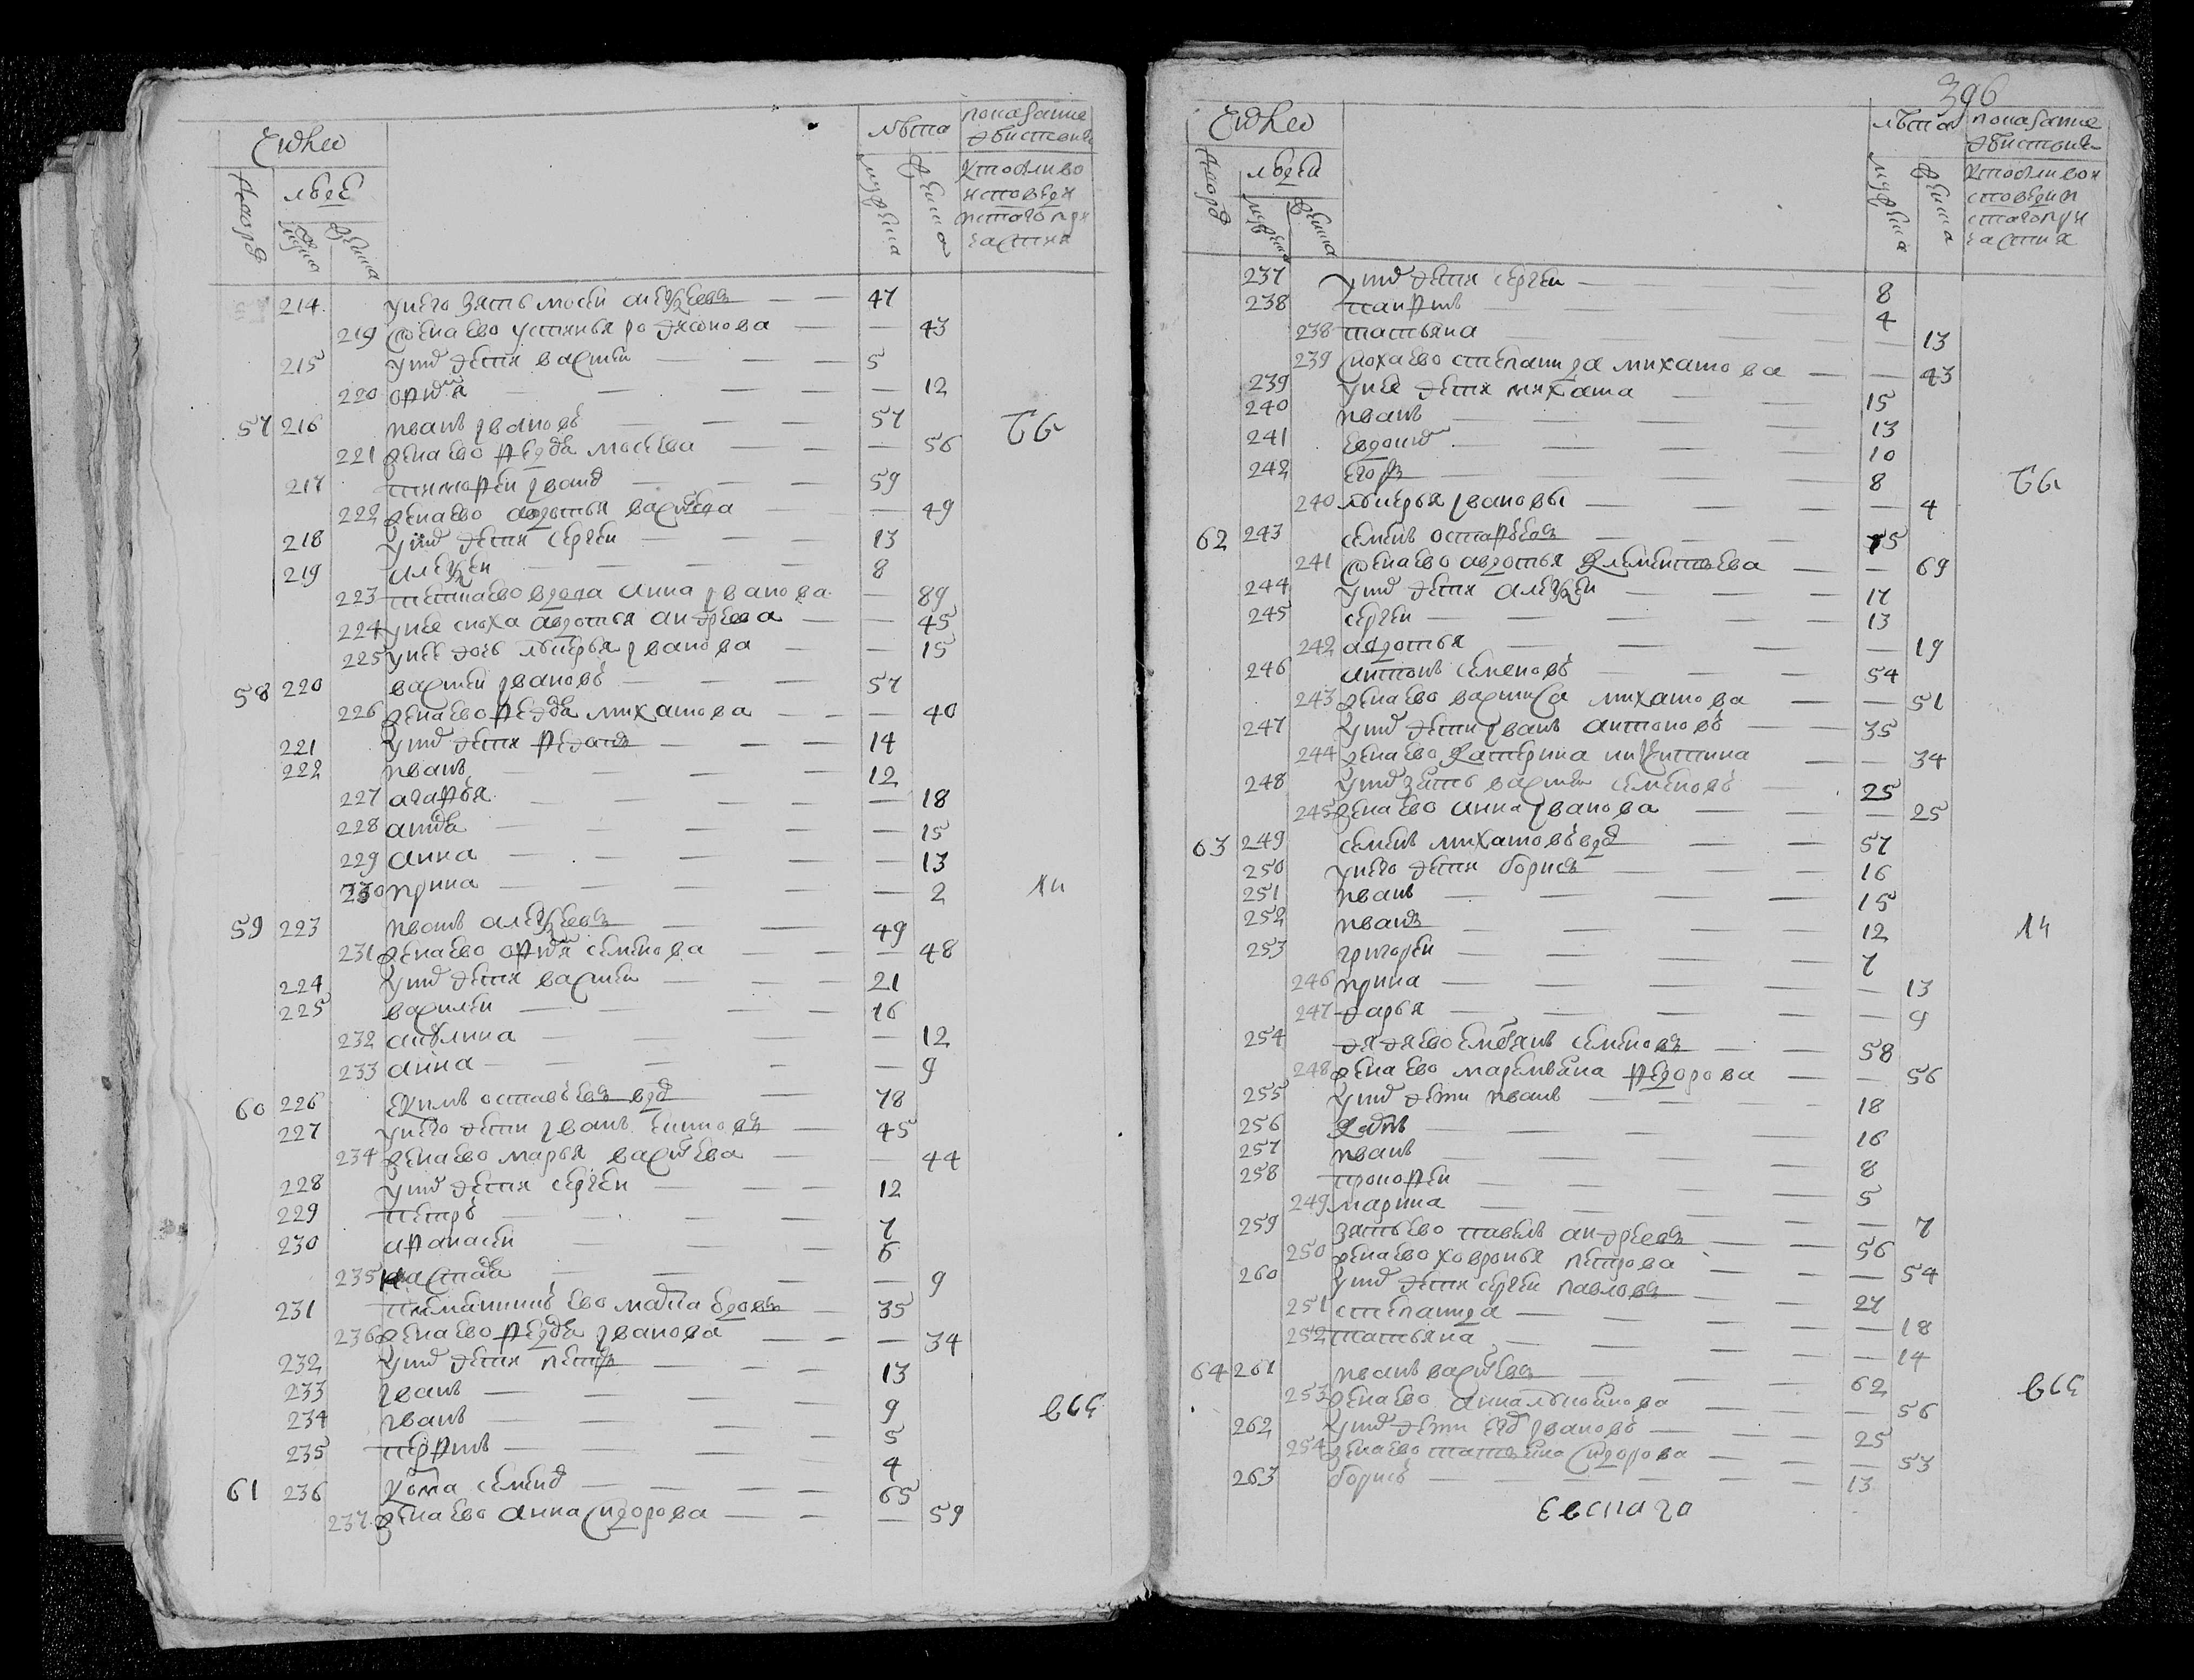 число
лѣта
показание
дѣйства
дворов
людей
мужеска
женска
кто были во
исповеди
и святого при
частия
214 у него зять Мосей Алексеевъ 47
219 жена ево Устинья Родионова 43
215 у них дети Василей 5
220 Офимя 12
57 216 Иванъ Ивановъ 57
221 жена ево Федосья Мосеева 56
217 Тимофей Иванов 59
222 жена ево Авдотья Васильева 49
218 у них дети Сергей 13
219 Алексей 8
223 тетка ево вдова Анна Иванова 89
224 у нее сноха Авдотья Андреева 45
225 у нее дочь Лукерья Иванова 15
58 220 Василей Ивановъ 57
226 жена ево Федосья Михайлова 40
221 у них дети 14
222 Иванъ 12
227 Агафья 18
228 15
229 Анна 13
230 Ирина 2
59 223 Иванъ Алексеевъ 49
231 жена ево Офимя Семенова 48
224 у них дети Василей 21
225 Василей 16
232 Акулина 12
233 Анна 9
60 226 Екимъ Остафьевъ вдов 78
227 у него дети Иванъ Екимовъ 45
234 жена ево Марья Васильева 44
228 у них дети Сергей 12
229 Петръ 7
230 Афанасей 6
235 Настасья 9
231 племянникъ ево 35
236 жена ево Федосья Иванова 34
232 у них дети Петръ 13
233 Иванъ 9
234 Иванъ 5
235 Перфилъ 4
61 236 Кузма Семенов 65
237 жена ево Анна Сидорова 59
396
число
лѣта
показание
дѣйства
дворов
людей
мужеска
женска
кто были во и
споведи и
святого при
частия
237 у них дети Сергей 8
238 Панфилъ 4
238 Татьяна 13
239 сноха ево Степанида Михайлова 43
239 у нее дети Михайла 15
240 Иванъ 13
241 Евдоким 10
242 Егоръ 8
240 Лукерья Ивановы 4
62 243 Семенъ Остафьевъ 75
241 жена ево Авдотья Клементьева 69
244 у них дети Алексей 17
245 Сергей 13
242 Авдотья 19
246 Антонъ Семеновъ 54
243 жена ево Василиса Михайлова 51
247 у них дети Иванъ Антоновъ 35
244 жена ево Катерина Никитина 34
248 у них зять Василей Семеновъ 25
245 жена ево Анна Иванова 25
63 249 Семенъ Михайловъ вдов 57
250 у него дети Борисъ 16
251 Иванъ 15
252 Иванъ 12
253 Григорей 7
246 Ирина 13
247 Дарья 9
254 дядя ево Емельянъ Семеновъ 58
248 жена ево Маремьяна Федорова 56
255 у них дети Иванъ 18
256 16
257 Иванъ 8
258 Прокофей 5
249 Марина 7
259 зять ево Павелъ Андреевъ 56
250 жена ево Ховронья Петрова 54
260 у них дети Сергей Павловъ 27
251 Степанида 18
252 Татьяна 14
64 261 Иванъ Васильевъ 62
253 жена ево Анна 56
262 у них дети Ивановъ 25
254 жена ево Татьяна Сидорова 53
263 Борисъ 13